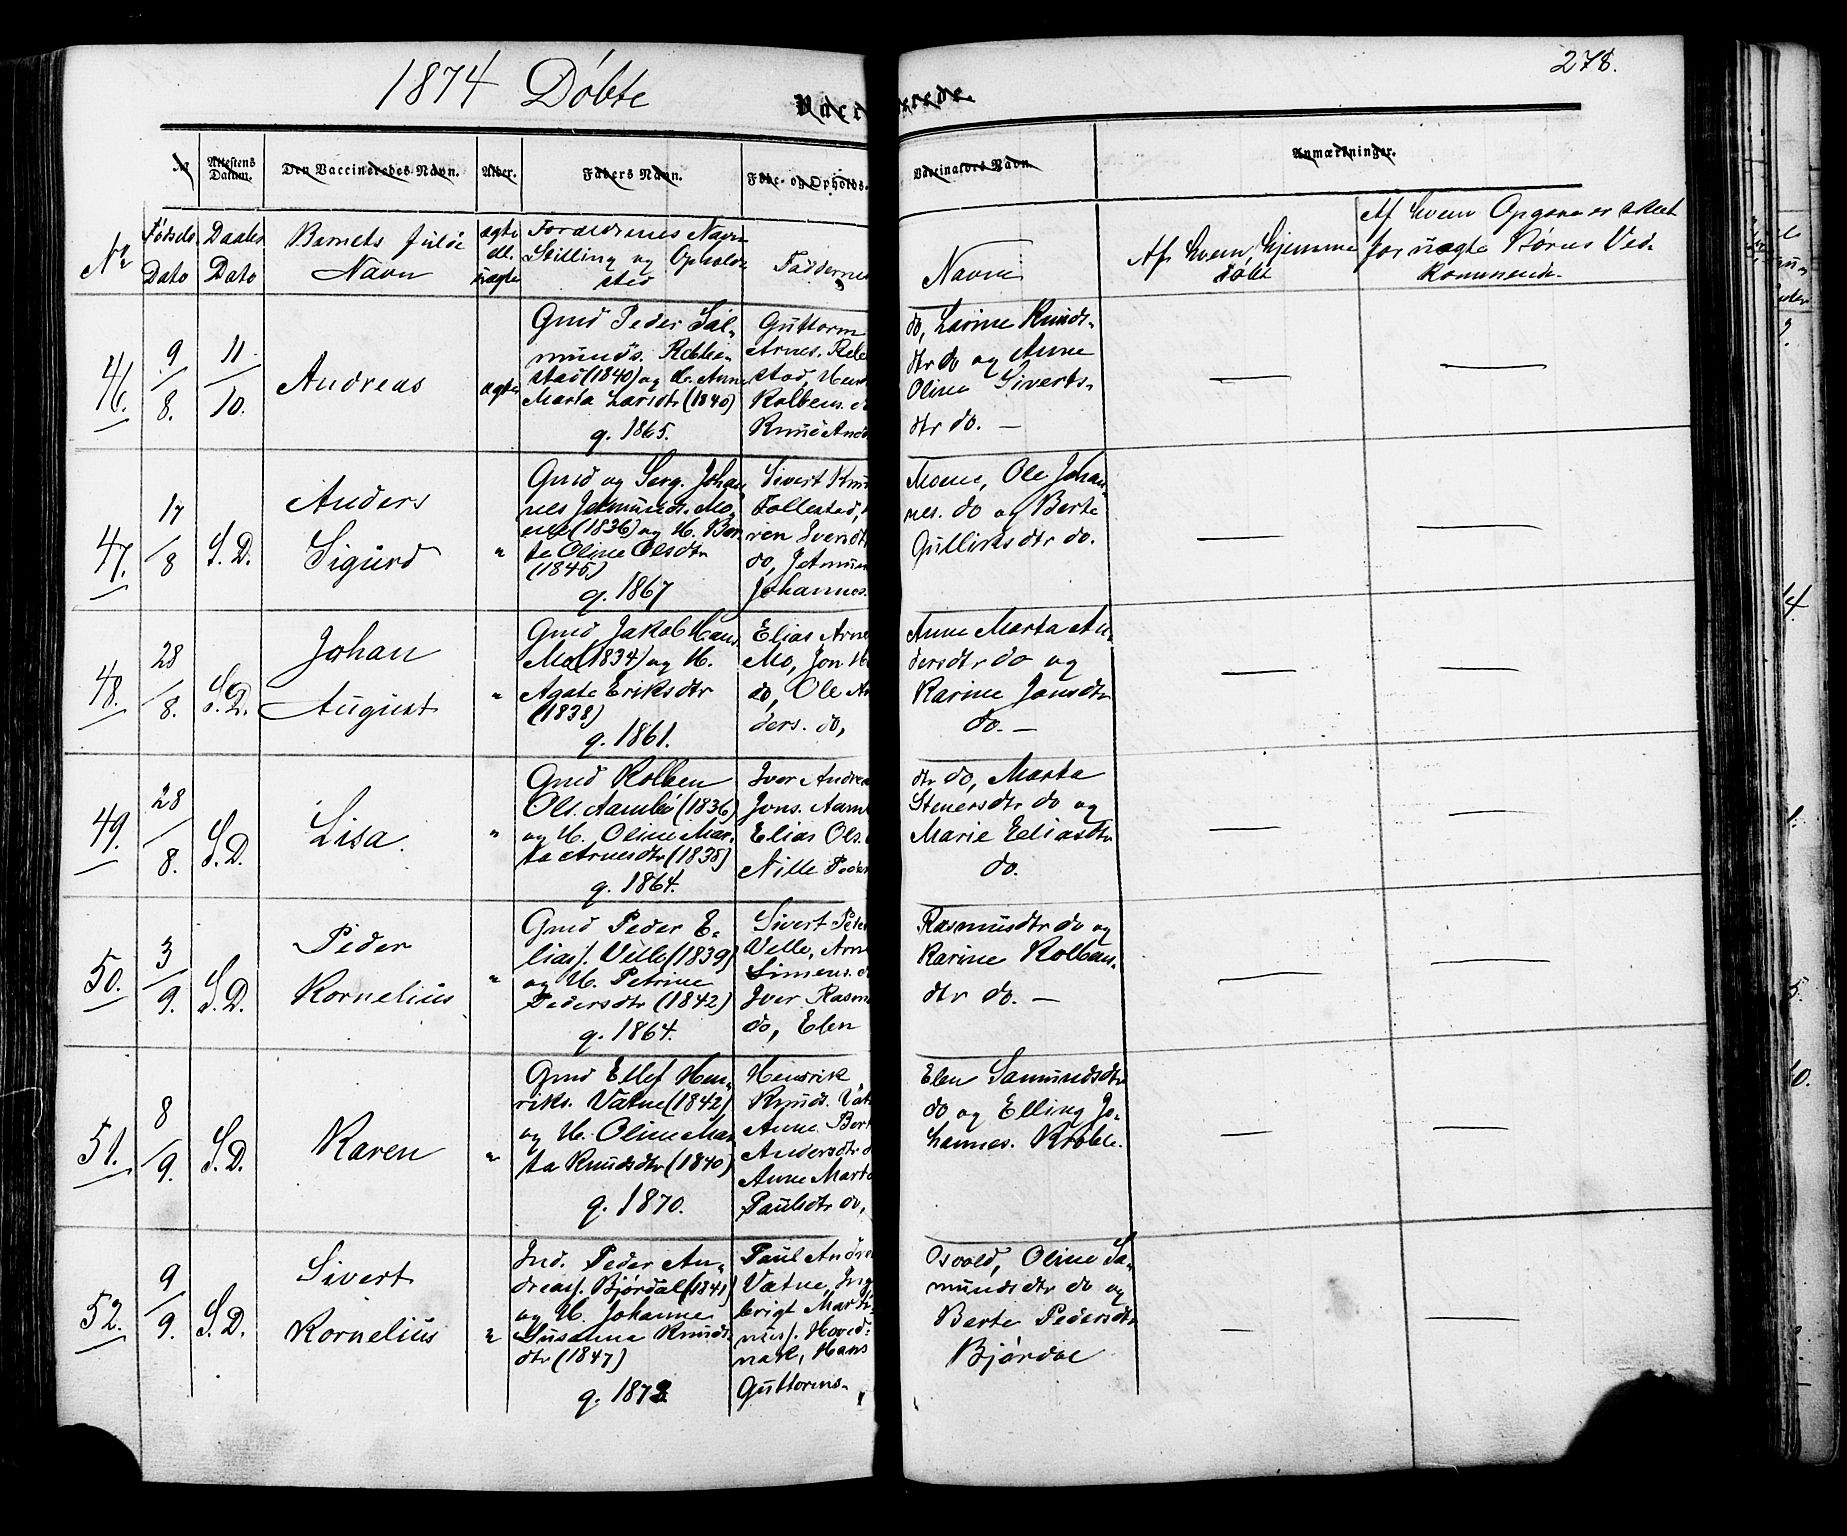 1874 Döbte
278.
Vacc erede.
No
Attestens Datum.
Den Vaccineredes Navn.
Alder.
Faders Navn.
Føde- og Opholds-
Vaccinators Navn.
Anmærkninger.
No
Fødsels Dato
Daabs Dato
Barnets fulde Navn
ægte el. uægte
Forældrenes Navn
Stilling og Opholds
sted
Faddernes
Navne
Af hvem hjemme
döbt
Af hvem Opgave er skeet
for uægte Börns Ved-
kommende.
46.
9/8.
11/10.
Andreas
ægte
Gmd Peder Sal-
munds. Rebbe-
stad (1840) og H. Anne
Marta Larsdtr (1840)
g. 1865.
Guttorm
Arnes. Rebbe
stad, Hen
Kolbens. d
Knud And
do, Larine Knuds-
dtr do og Anne
Oline Siverts-
dtr do. —
47.
17/8
S. D.
Anders
Sigurd
"
Gmd og Serg. Johan
nes Jetmunds. Mo-
ene (1836) og H. Ber
te Oline Olsdtr
(1845)
g. 1867
Sivert Knu
Follestad,
ren Iversdt
do, Jetmun
Johannes.
Moene, Ole Johan-
nes. do og Berte
Gulliksdtr do.
48.
28/8.
S. D.
Johan
August
"
Gmd Jakob Hans
Mo (1834) og H.
Agate Eriksdtr
(1838)
g. 1861.
Elias Arne
Mo, Jon H
do, Ole An
ders. do,
Anne Marta An-
dersdtr do og
Karine Jonsdtr
do. —
49.
28/8.
S. D.
Lisa.
"
Gmd Kolben
Ols. Aambö (1836)
og H. Oline Mar-
ta Arnesdtr (1838)
g. 1864.
Iver Andrea
Jons. Aam
Elias Ols.
Nille Peder
dtr do, Marta
Steffensdtr do og
Marie Eliasdtr
do.
50.
3/9.
S. D.
Peder
Kornelius
"
Gmd Peder E-
lias. Velle (1839)
og H. Petrine
Pedersdtr (1842)
g. 1864.
Sivert Peter
Velle, Arn
Simens. d
Iver Rasm
do, Elen
Rasmusdtr do og
Karine Kolbens-
dtr do. —
51.
8/9.
S. D.
Karen
"
Gmd Ellef Hen-
riks. Vatne (1842)
og H. Oline Mar
ta Knudsdtr (1840)
g. 1870.
Henrik
Knuds. Vat
Anne Bert
Andersdtr d
Anne Marta
Paulsdtr do,
Elen Samundsdtr
do og Elling Jo-
hannes. Kroble.
52.
9/9.
S. D.
Sivert
Kornelius
"
Ind. Peder An-
dreas. Bjørdal (1841)
og H. Johanne
Susanna Knuds-
dtr (1847)
g. 1873
Paul Andre
Vatne, Ing
brigt Marti-
nus. Hoved-
nak, Hans
Guttorms-
Osvold, Oline Sa-
mundsdtr do og
Berte Pedersdtr
Björdal